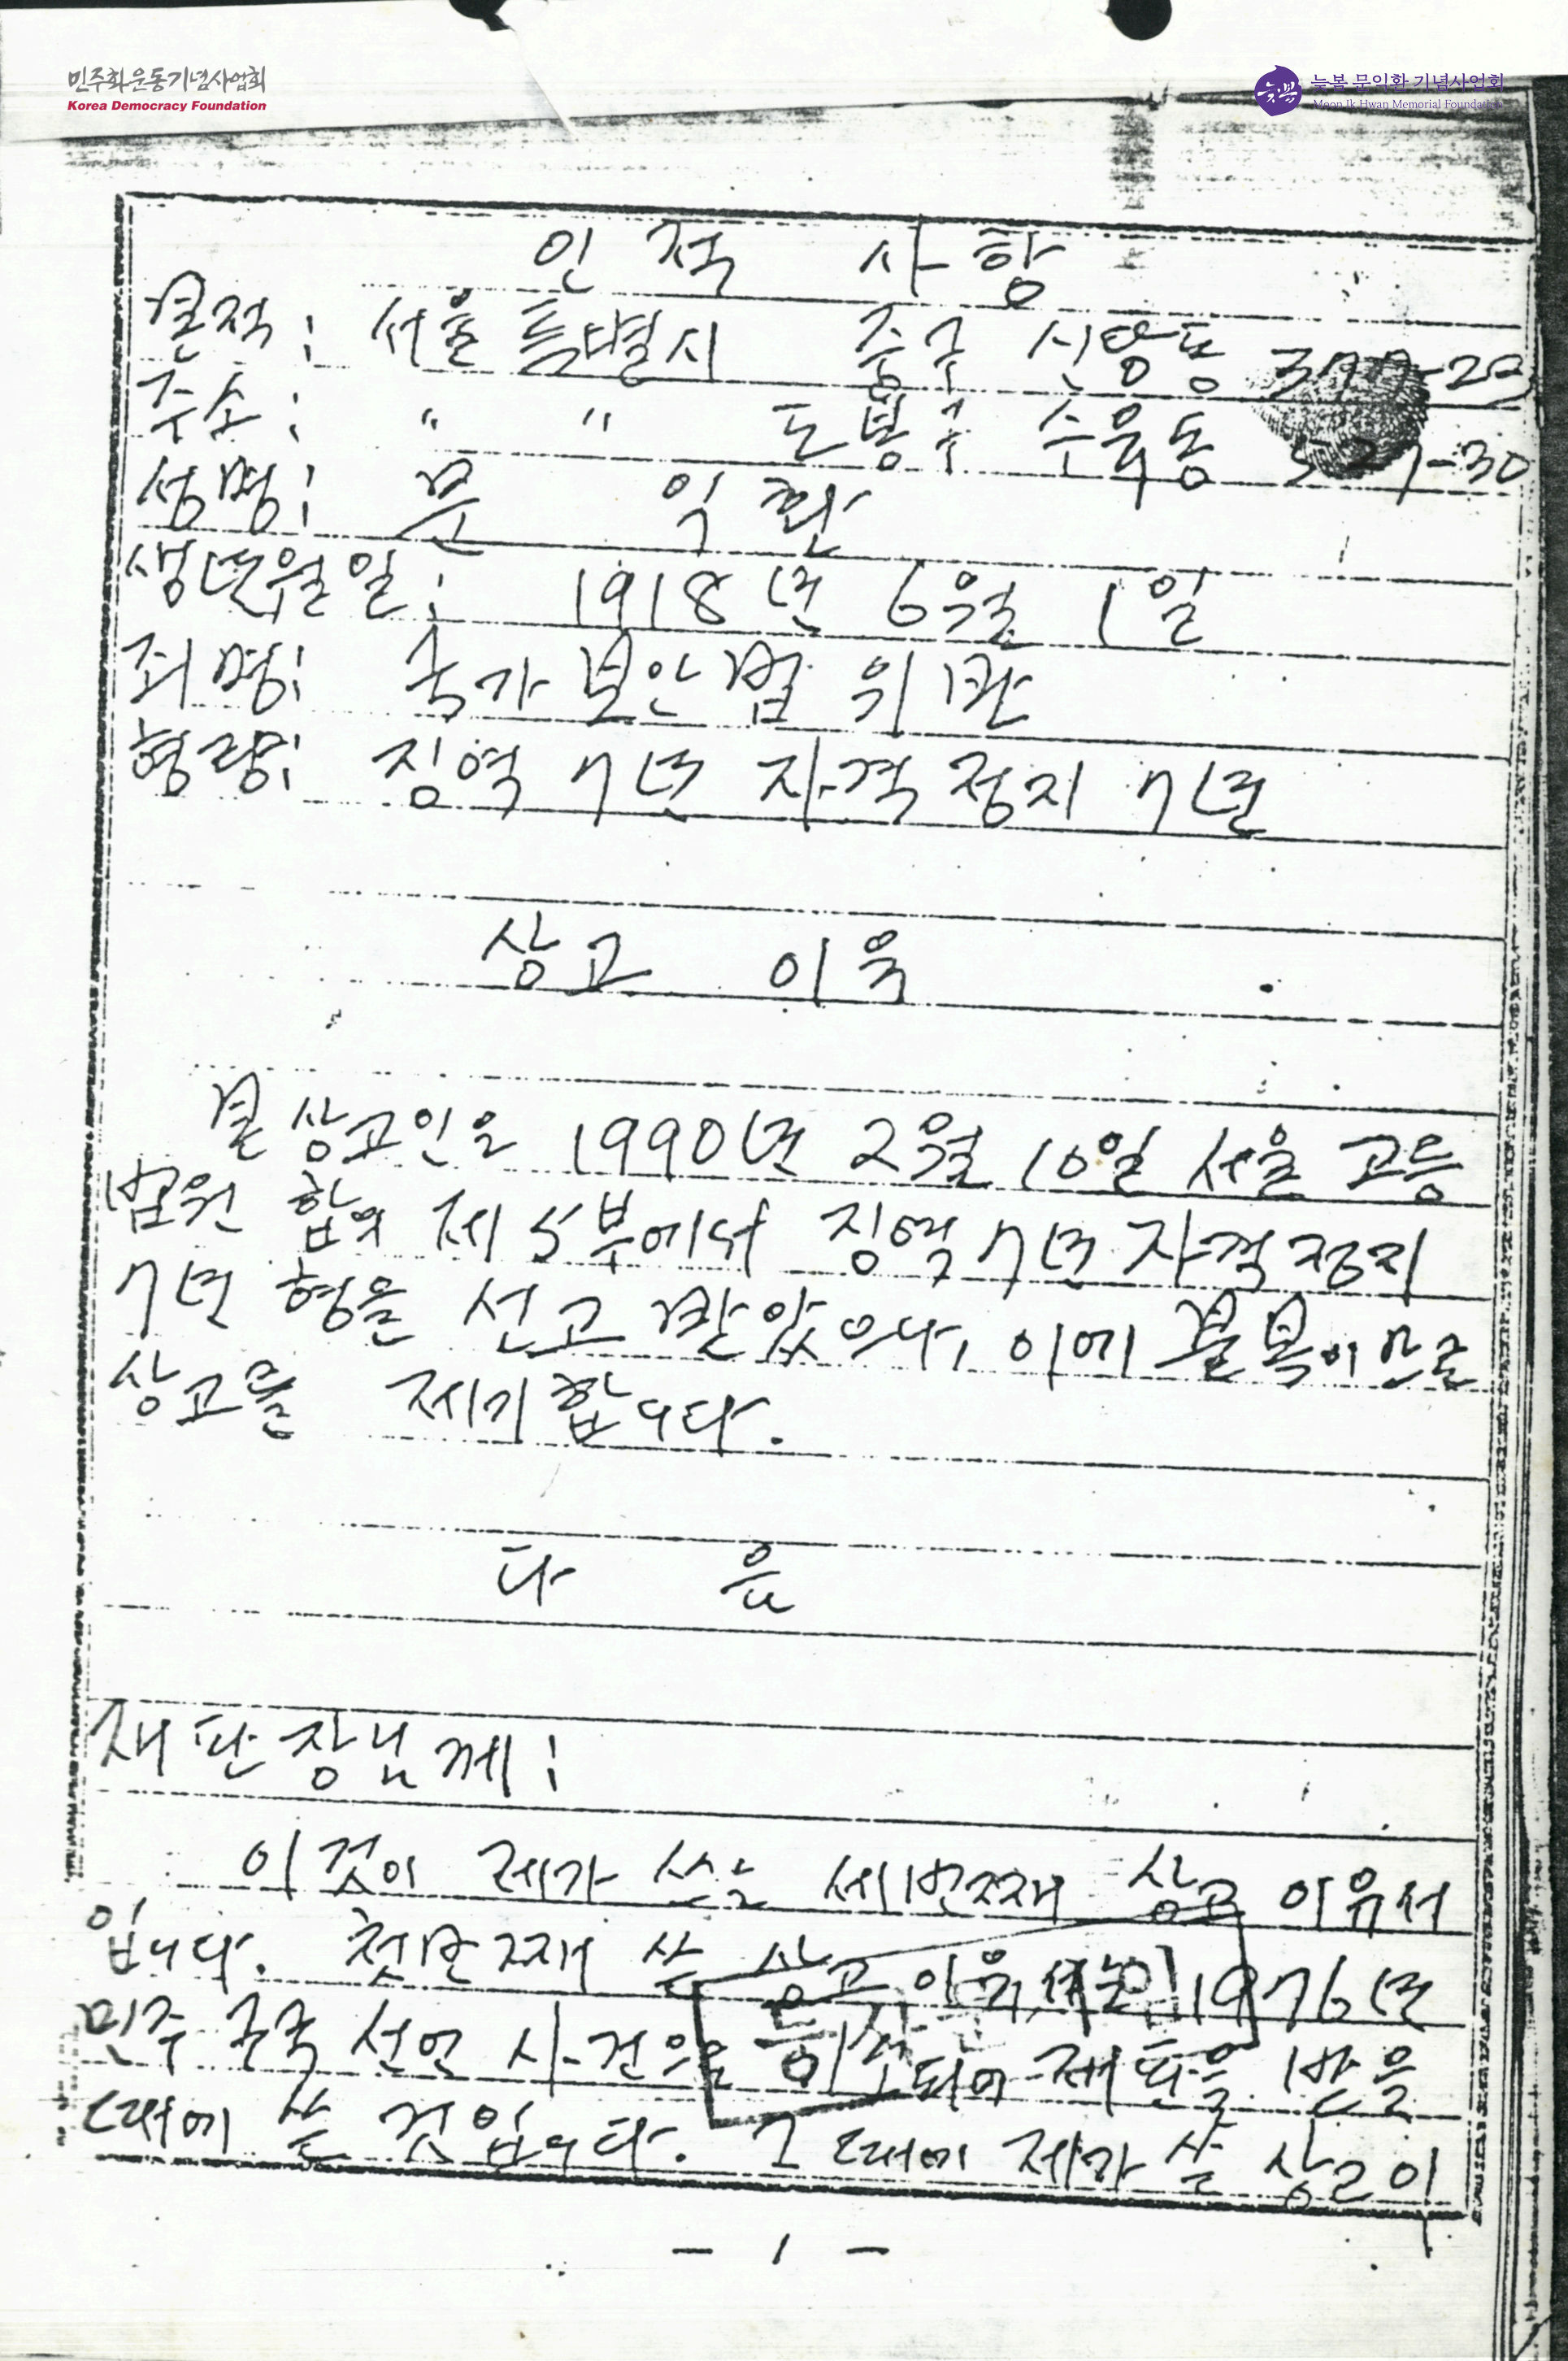 민주화운동기념사업회
Korea Democracy Foundation
늦봄 문익환 기념사업회
Moon Ik Hwan Memorial Foundation
인적 사항
본적: 서울특별시 중구 신당동 377-23
주소: " " 도봉구 수유동 527-30
성명: 문 익환
생년월일: 1918년 6월 1일
죄명: 국가보안법 위반
형량: 징역 7년 자격정지 7년
상고 이유
본 상고인은 1990년 2월 10일 서울 고등
법원 합의 제5부에서 징역 7년 자격정지
7년 형을 선고 받았으나, 이에 불복이므로
상고를 제기합니다.
다 음
재판장님께:
이것이 제가 쓰는 세번째 상고 이유서
입니다. 첫번째 쓴 상고 이유서는 1976년
민주 구국 선언 사건으로 되어 재판을 받을
때에 쓴 것입니다. 그 때에 제가 쓴 상고이
- 1 -